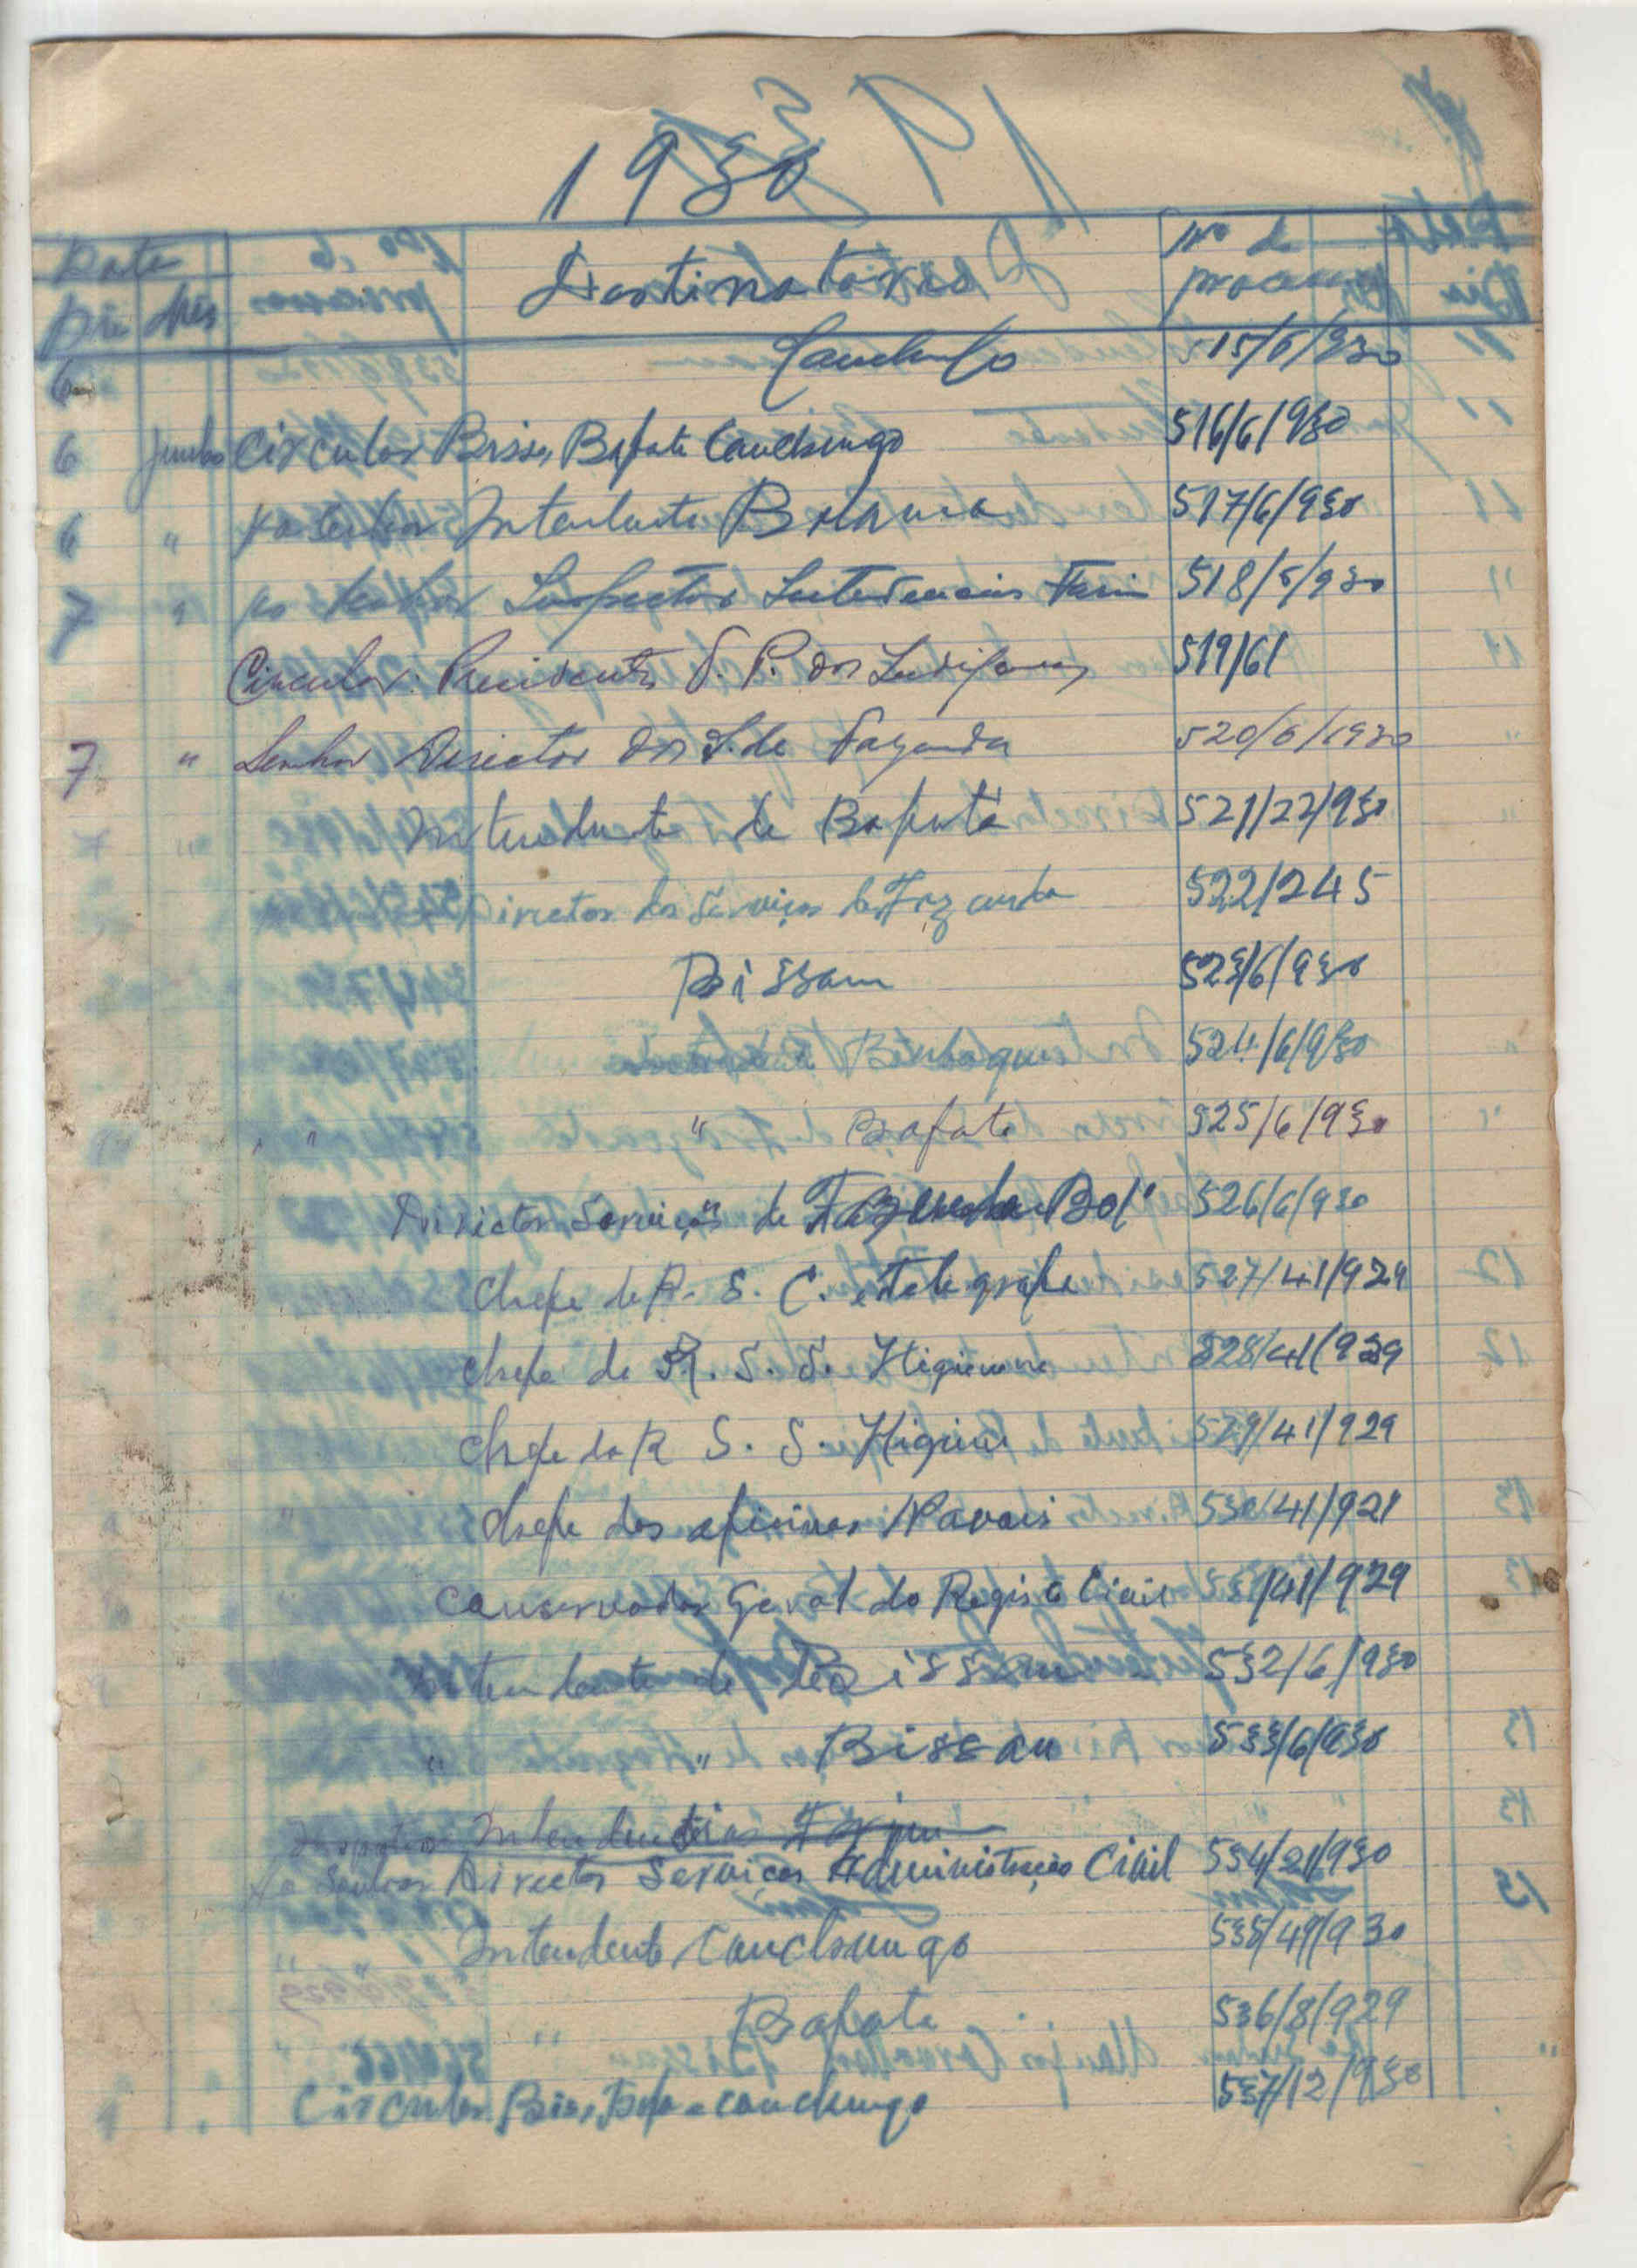 1930
Data Nº de
Dia Mês processo Destinatarios Nº de processo
6 Canchungo 515/6/930
6 Junho Circular Bissau, Bafata Canchungo 516/6/930
6 " Ao Senhor Intendente Bolama 517/6/930
7 " Ao Senhor Inspector Intendencias Farim 518/6/930
Circular. Presidentes dos Indigenas 519/61
7 " Senhor Director dos S. de Fazenda 520/6/1930
Intendente de Bafatá 521/22/930
Director dos Serviços de Fazenda 522/245
Bissau 523/6/930
524/6/930
" " Bafata 525/6/930
Director Serviços de Fazenda Bol 526/6/930
Chefe de R. S. C. e Telegrafe 527/41/929
Chefe de R. S. S. Higiene 528/41/929
Chefe da R S. S. Higiene 529/41/929
Chefe das oficinas Navais 530/41/929
Conservador Geral do Registo Civil 531/41/929
Intendente de Bissau 532/6/930
" " Bissau 533/6/930
Inspector Intendencias Farim
Ao Senhor Director Serviços Administração Civil 534/21/930
Intendente Canchungo 535/49/930
" Bafata 536/8/929
Circular Biss, Bafa e canchungo 537/12/930